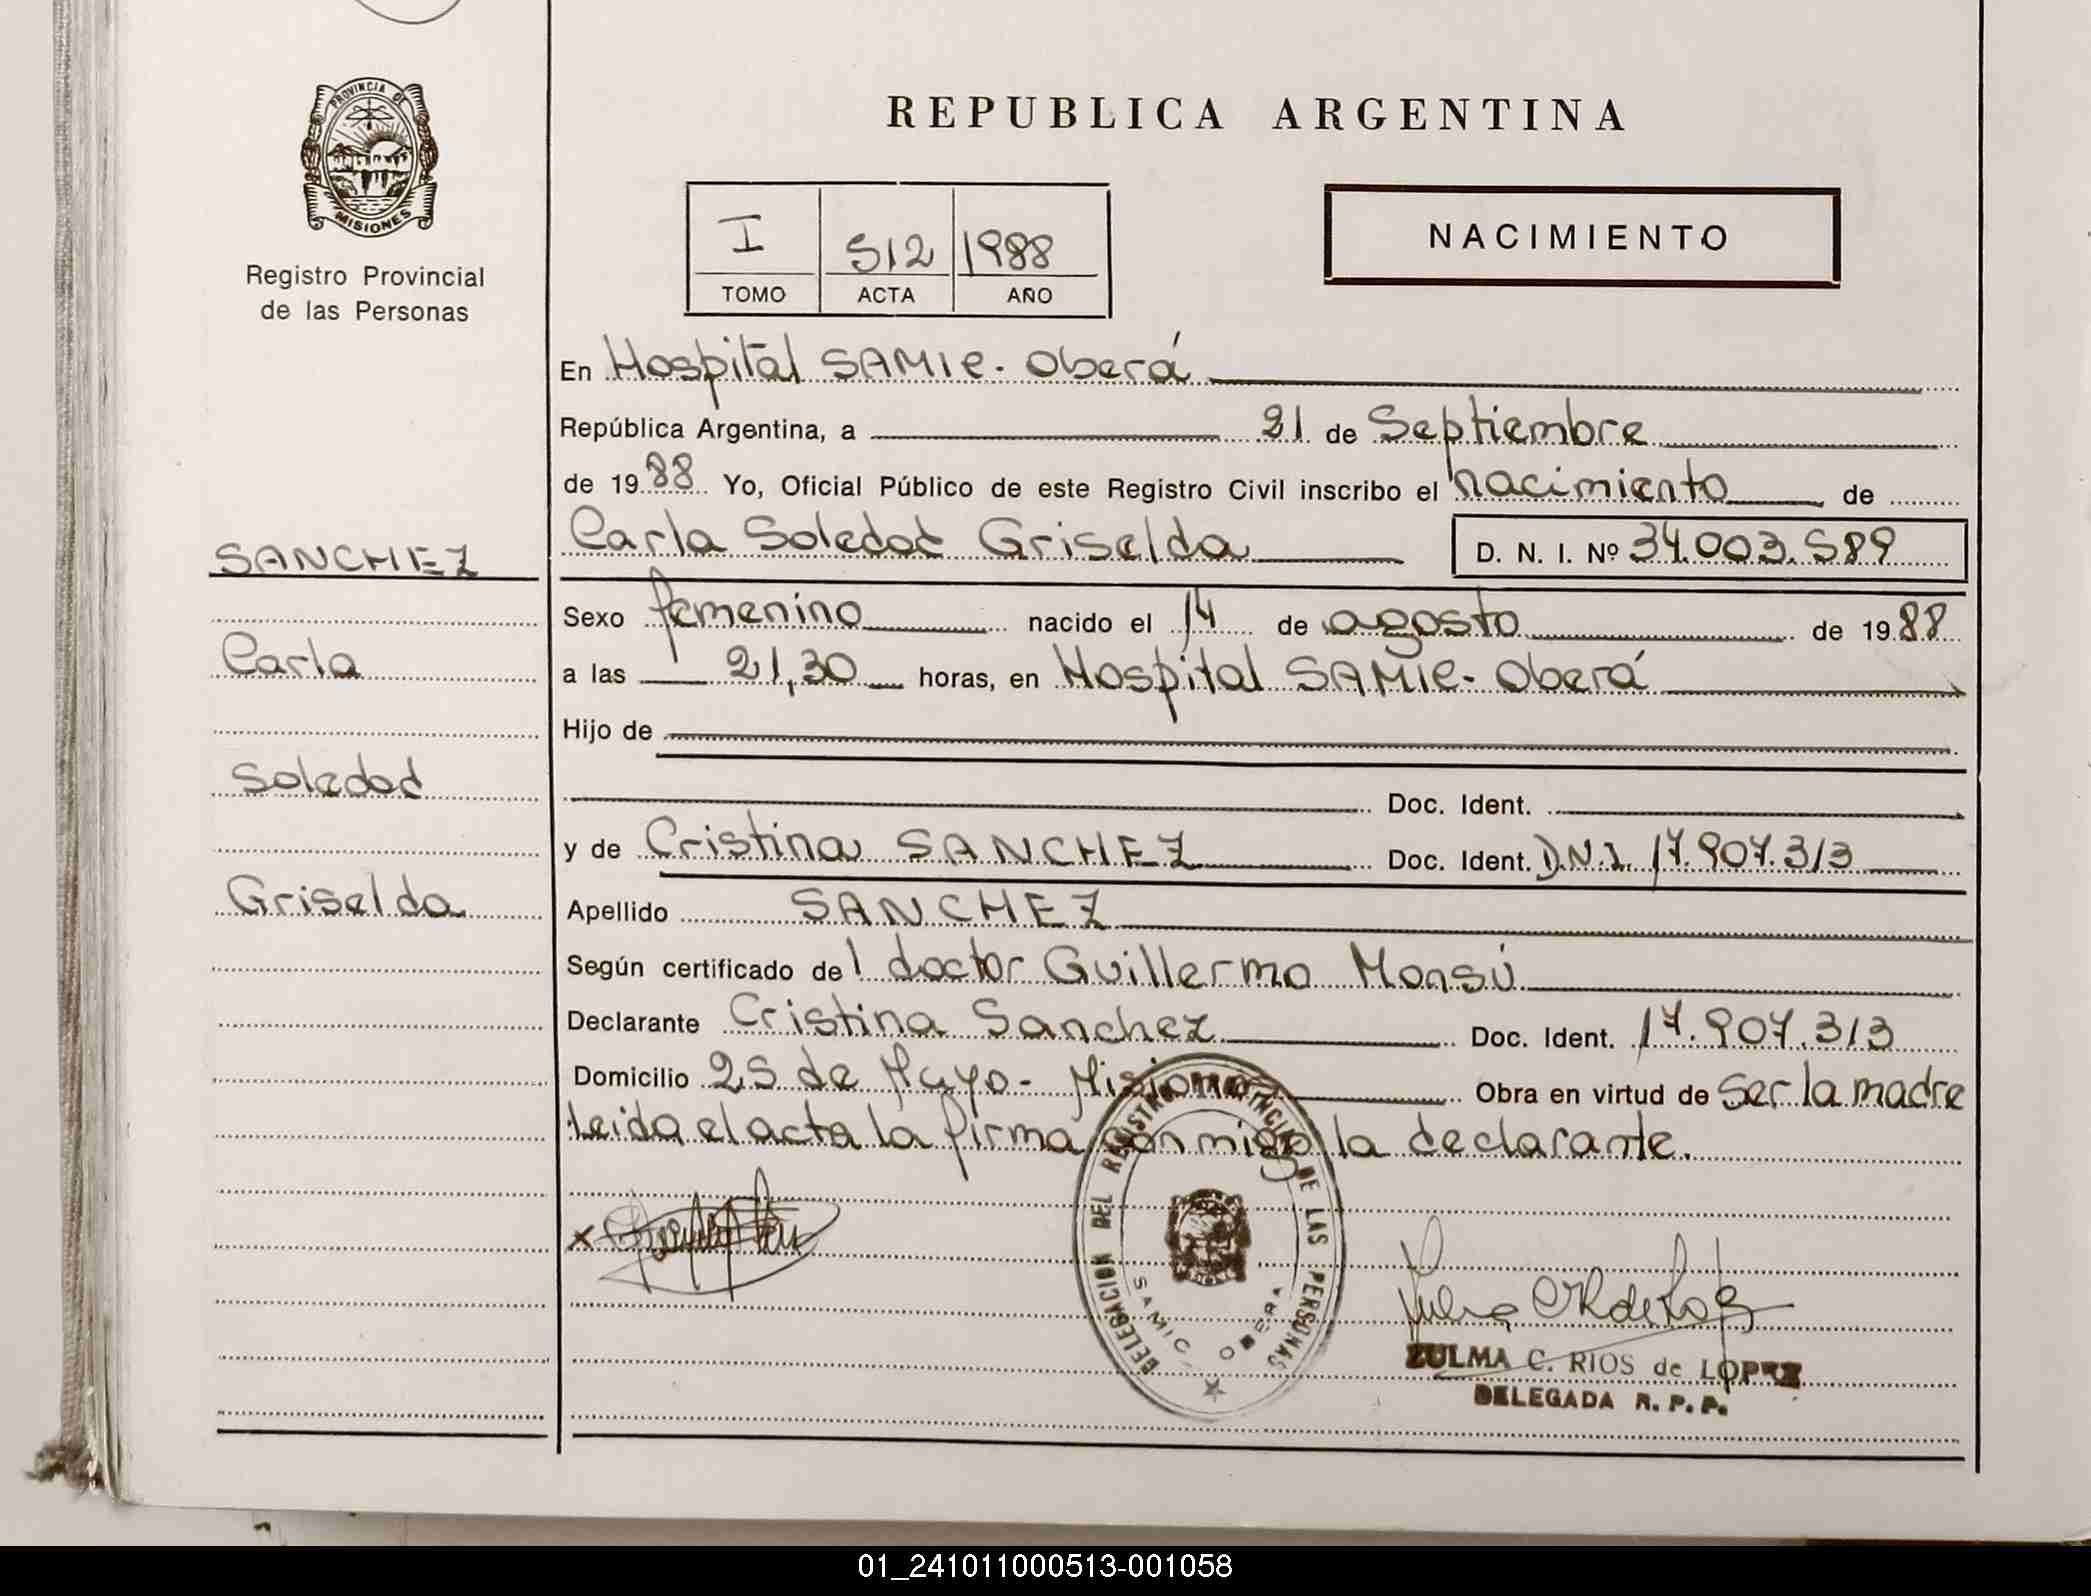 PROVINCIA DE
MISIONES
Registro Provincial
de las Personas
SANCHEZ
Carla
Soledad
Griselda
REPUBLICA ARGENTINA
I 512 1988
TOMO ACTA AÑO
NACIMIENTO
En Hospital SAMIC - Oberá
República Argentina, a 21 de Septiembre
de 1988 Yo, Oficial Público de este Registro Civil inscribo el nacimiento de
Carla Soledad Griselda D. N. I. Nº 34.003.589
Sexo femenino nacido el 14 de agosto de 1988
a las 21,30 horas, en Hospital SAMIC - Oberá
Hijo de
Doc. Ident.
y de Cristina SANCHEZ Doc. Ident. D.N.I. 17.907.313
Apellido SANCHEZ
Según certificado del doctor Guillermo Monsú
Declarante Cristina Sanchez Doc. Ident. 17.907.313
Domicilio 25 de Mayo - Misiones Obra en virtud de Ser la madre
Leida el acta la firma conmigo la declarante.
x
DELEGACION DEL REGISTRO PROVINCIAL DE LAS PERSONAS
SAMIC OBERA
ZULMA C. RIOS de LOPEZ
DELEGADA R. P. P.
01_241011000513-001058